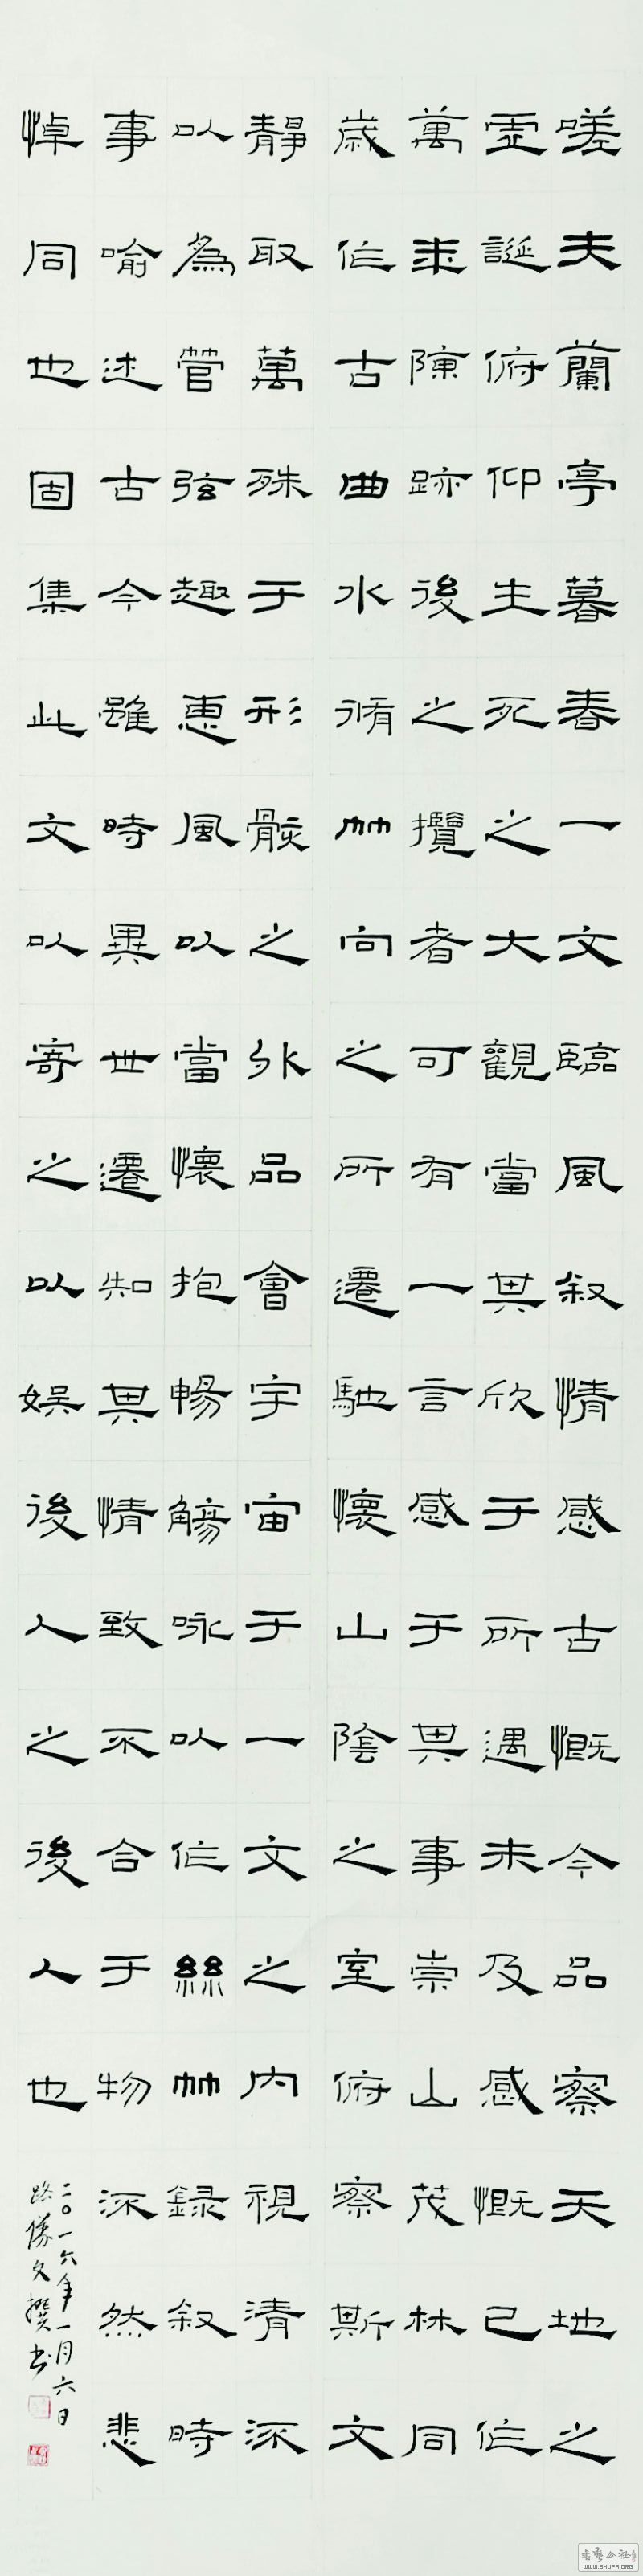 嗟夫蘭亭暮春一文臨風叙情感古慨今品察天地之
虛誕俯仰生死之大觀當其欣于所遇未及感慨已作
萬年陳跡後之攬者可有一言感于其事崇山茂林同
歲作古曲水脩竹向之所遷馳懷山陰之室俯察斯文
靜取萬殊于形骸之外品會宇宙于一文之内視清深
以為管弦趣惠風以當懷抱暢觴咏以作絲竹録叙時
事喻述古今雖時異世遷知其情致不合于物深然悲
悼同也固集此文以寄之以娱後人之後人也
二〇一六年一月六日
路 文撰书
WWW.SHUFA.ORG